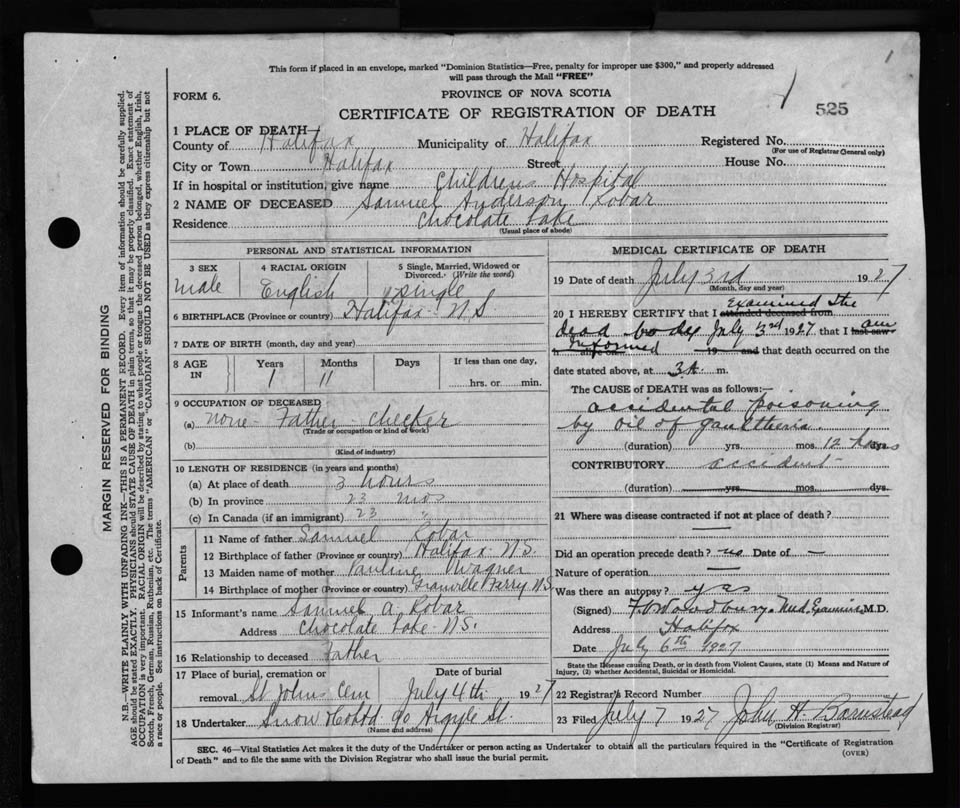 This form if placed in an envelope, marked "Dominion Statistics—Free, penalty for improper use $300," and properly addressed
will pass through the Mail "FREE"
1
FORM 6.
PROVINCE OF NOVA SCOTIA
CERTIFICATE OF REGISTRATION OF DEATH
525
1 PLACE OF DEATH
County of Halifax Municipality of Halifax Registered No.
(For use of Registrar General only)
City or Town Halifax Street House No.
If in hospital or institution, give name Childrens Hospital
2 NAME OF DECEASED Samuel Anderson Robar
Residence Chocolate Lake
(Usual place of abode)
PERSONAL AND STATISTICAL INFORMATION
3 SEX male
4 RACIAL ORIGIN English
5 Single, Married, Widowed or Divorced. (Write the word) single
6 BIRTHPLACE (Province or country) Halifax N.S.
7 DATE OF BIRTH (month, day and year)
8 AGE IN Years 1 Months 11 Days If less than one day, hrs. or min.
9 OCCUPATION OF DECEASED
(a) none - Father - checker
(Trade or occupation or kind of work)
(b)
(Kind of industry)
10 LENGTH OF RESIDENCE (in years and months)
(a) At place of death 3 hours
(b) In province 23 mos
(c) In Canada (if an immigrant) 23 "
Parents
11 Name of father Samuel Robar
12 Birthplace of father (Province or country) Halifax N.S.
13 Maiden name of mother Pauline Wagner
14 Birthplace of mother (Province or country) Granville Ferry N.S
15 Informant's name Samuel A. Robar
Address Chocolate Lake N.S.
16 Relationship to deceased Father
17 Place of burial, cremation or removal St Johns Cem Date of burial July 4th 1927
18 Undertaker Snow & Co Ltd 90 Argyle St.
(Name and address)
MEDICAL CERTIFICATE OF DEATH
19 Date of death July 3rd 1927
(Month, day and year)
20 I HEREBY CERTIFY that I attended deceased from examined the
dead body July 3rd 1927 that I last saw am
informed 19 and that death occurred on
date stated above, at 3 A. m.
The CAUSE of DEATH was as follows:—
accidental poisoning
by oil of gaultheria
(duration) yrs. mos. 12 hours dys.
CONTRIBUTORY accident
(duration) yrs. mos. dys.
21 Where was disease contracted if not at place of death?
—
Did an operation precede death? no Date of —
Nature of operation —
Was there an autopsy? yes
(Signed) F. V. Woodbury Med. Examiner M.D.
Address Halifax
Date July 6th 1927
State the Disease causing Death, or in death from Violent Causes, state (1) Means and Nature of
Injury, (2) whether Accidental, Suicidal or Homicidal.
22 Registrar's Record Number
23 Filed July 7 1927 John H Barnstead
(Division Registrar)
SEC. 46—Vital Statistics Act makes it the duty of the Undertaker or person acting as Undertaker to obtain all the particulars required in the "Certificate of Registration
of Death" and to file the same with the Division Registrar who shall issue the burial permit.
(OVER)
MARGIN RESERVED FOR BINDING
N.B.—WRITE PLAINLY WITH UNFADING INK—THIS IS A PERMANENT RECORD. Every item of information should be carefully supplied.
AGE should be stated EXACTLY. PHYSICIANS should STATE CAUSE OF DEATH in plain terms, so that it may be properly classified. Exact statement of
OCCUPATION is very important. RACIAL ORIGIN will be described by stating to what people or tongue the deceased person belonged, whether English, Irish,
Scotch, French, German, Russian, Ruthenian, etc. The terms "AMERICAN" or "CANADIAN" SHOULD NOT BE USED as they express citizenship but not
a race or people. See instructions on back of Certificate.